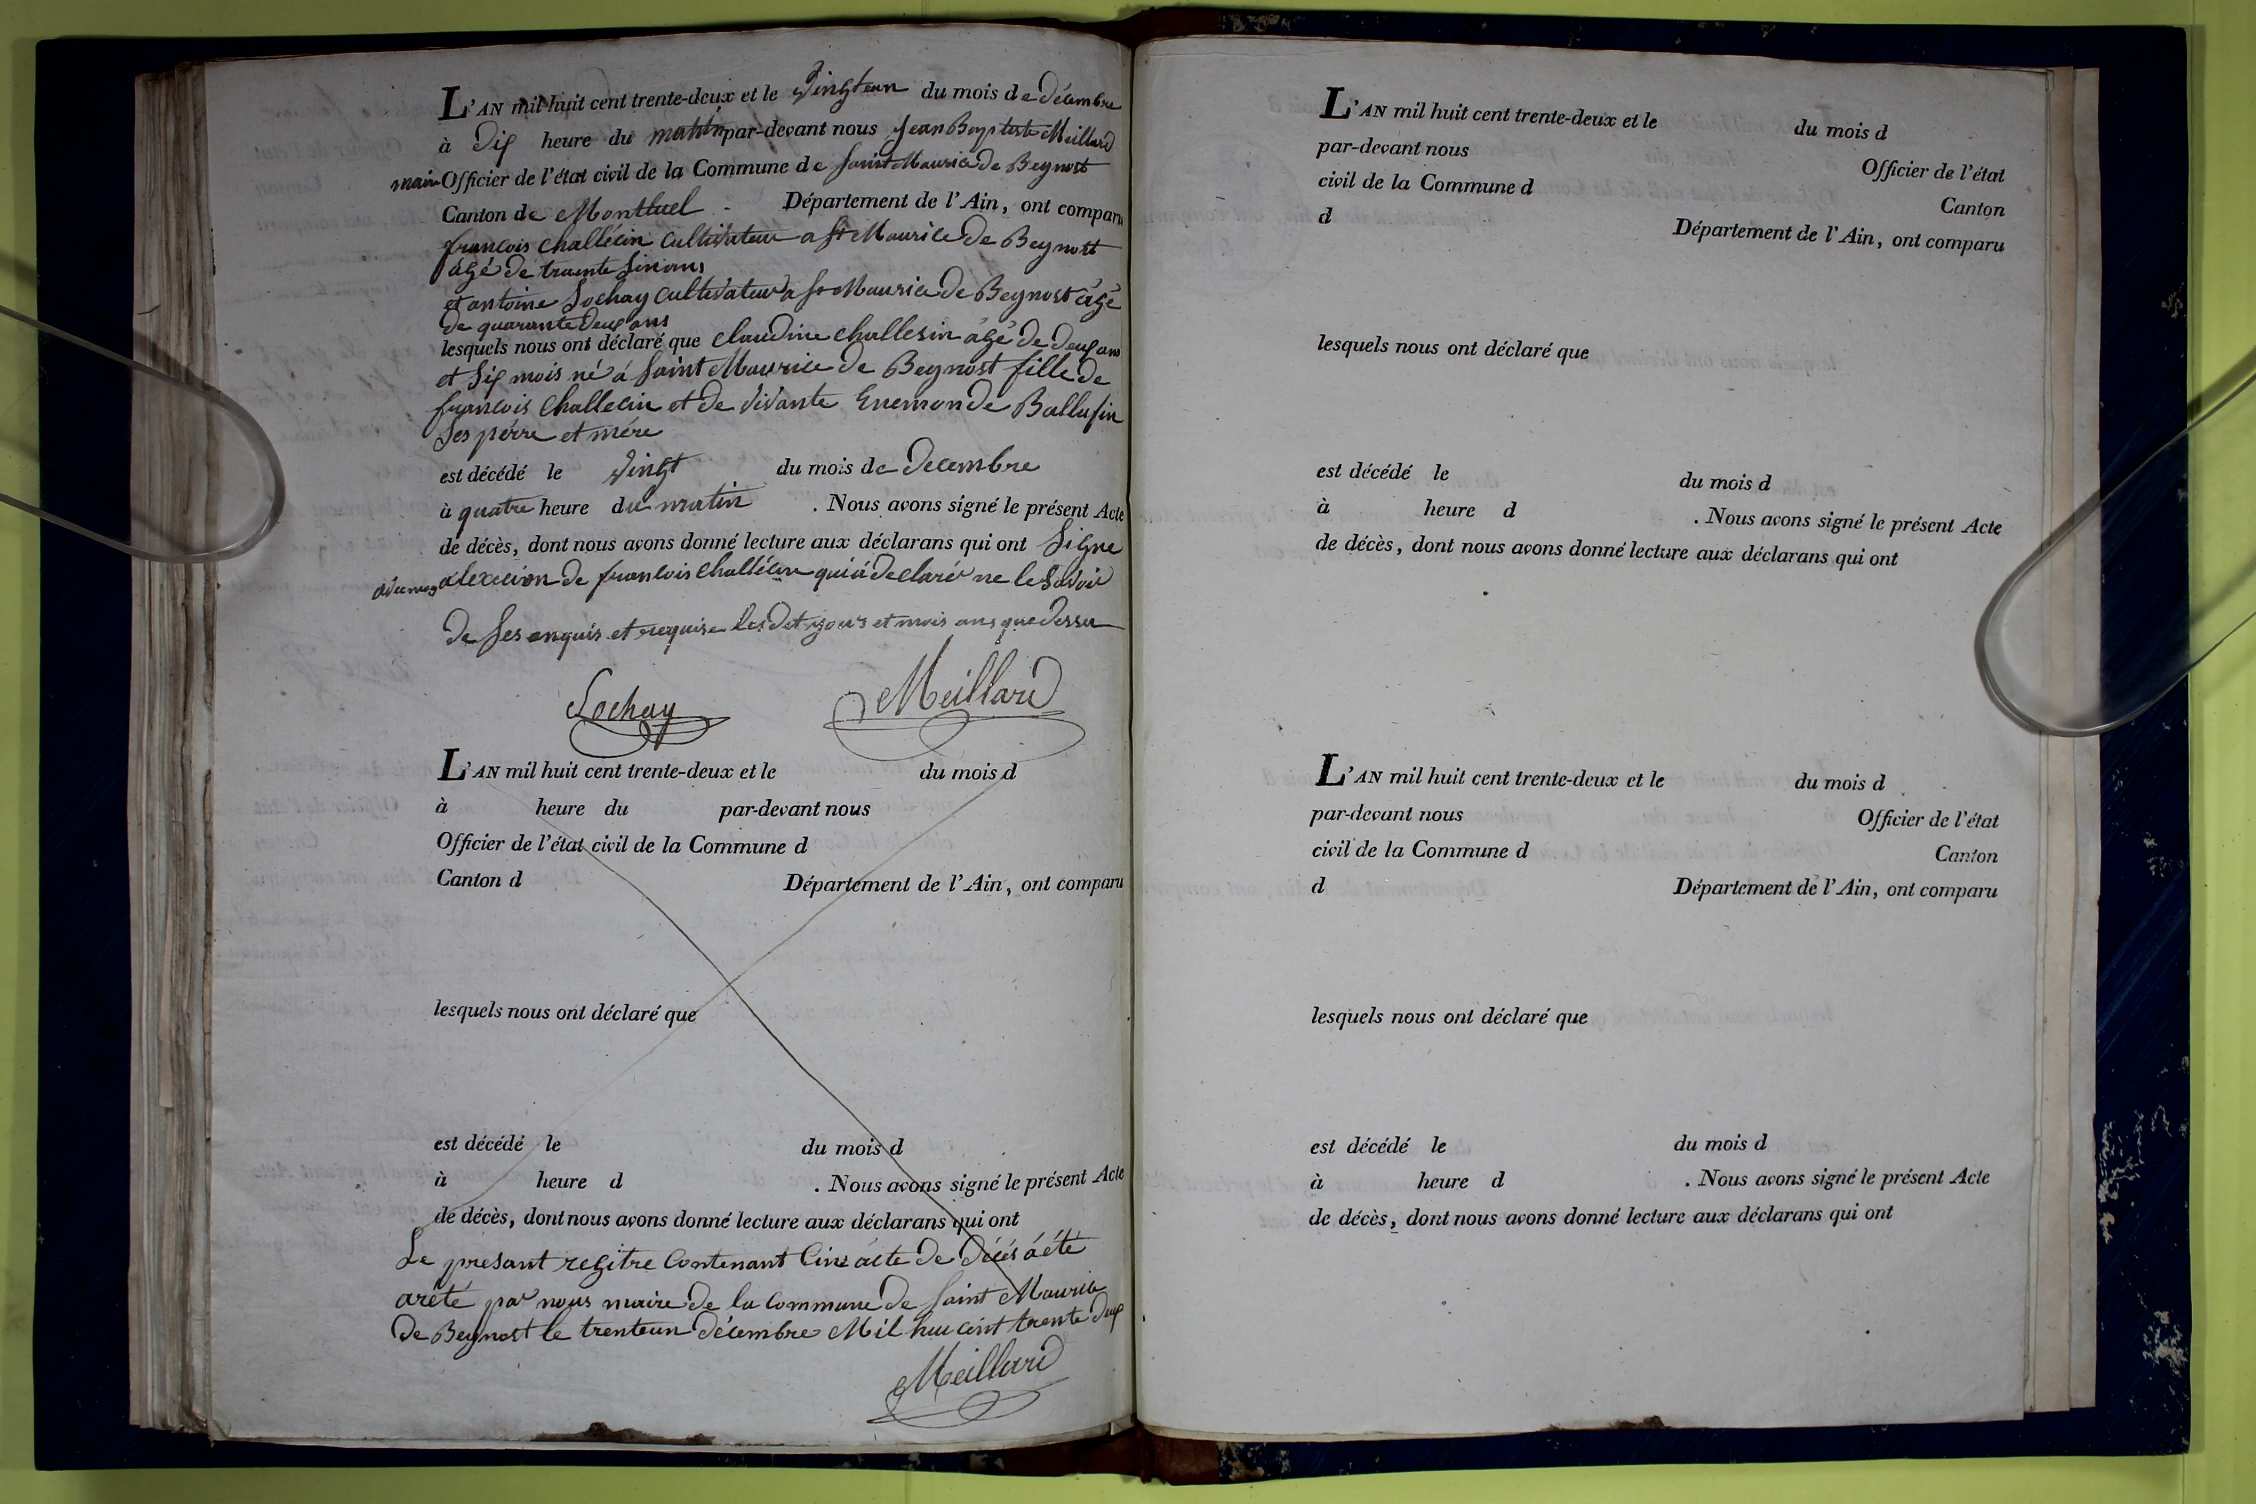 L'AN mil huit cent trente-deux et le vingt eun du mois de décembre
à dix heure du matin par-devant nous Jean Baptiste Meillard
maire Officier de l'état civil de la Commune de Saint Maurice de Beynost
Canton de Montluel Département de l'Ain, ont comparu
françois challécin cultivateur a St Maurice de Beynost
âgé de trante sin ans
et antoine Sochay cultivateur a St Maurice de Beynost âgé
de quarante deux ans
lesquels nous ont déclaré que claudine challesin âgé de deux ans
et six mois né á Saint Maurice de Beynost fille de
françois challecin et de vivante Enemonde Ballufin
ses pérre et mére
est décédé le vingt du mois de decembre
à quatre heure du matin . Nous avons signé le présent Acte
de décès, dont nous avons donné lecture aux déclarans qui ont signe
avec nous a lexcecion de françois challécin qui a declaré ne le savoir
de ses enquis et requise les det jours et mois ans que dessu
Sochay Meillard
L'AN mil huit cent trente-deux et le du mois d
à heure du par-devant nous
Officier de l'état civil de la Commune d
Canton d Département de l'Ain, ont comparu
lesquels nous ont déclaré que
est décédé le du mois d
à heure d . Nous avons signé le présent Acte
de décès, dont nous avons donné lecture aux déclarans qui ont
Le presant regitre contenant cinc acte de décés á été
arété par nous maire de la commune de Saint Maurice
de Beynost le trenteun décembre Mil huit cent trente deux
Meillard
L'AN mil huit cent trente-deux et le du mois d
par-devant nous Officier de l'état
civil de la Commune d Canton
d Département de l'Ain, ont comparu
lesquels nous ont déclaré que
est décédé le du mois d
à heure d . Nous avons signé le présent Acte
de décès, dont nous avons donné lecture aux déclarans qui ont
L'AN mil huit cent trente-deux et le du mois d
par-devant nous Officier de l'état
civil de la Commune d Canton
d Département de l'Ain, ont comparu
lesquels nous ont déclaré que
est décédé le du mois d
à heure d . Nous avons signé le présent Acte
de décès, dont nous avons donné lecture aux déclarans qui ont